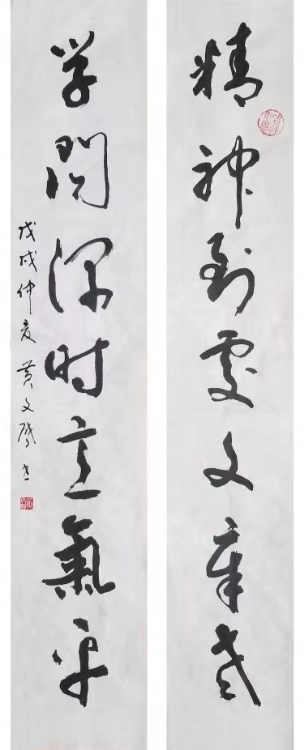 精神到處文章老
学問深时意氣平
戊戌仲夏 黄文书